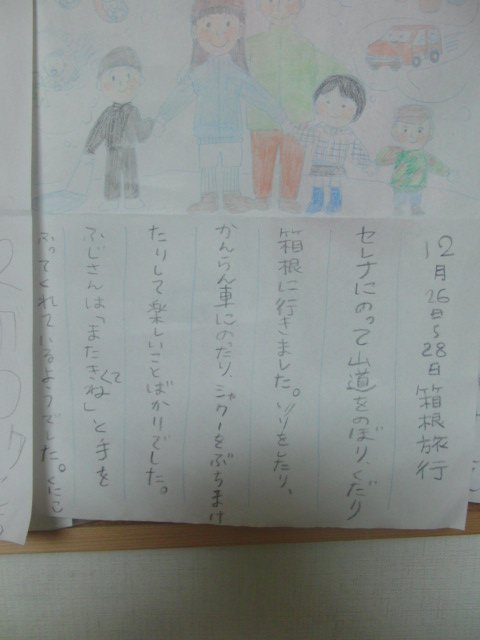 12月26日~28日箱根旅行
セレナにのって山道をのぼり、くだり
箱根に行きました。ソリをしたり、
かんらん車にのったり、シャワーをぶちまけ
たりして楽しいことばかりでした。
ふじさんは「またきてね」と手を
ふってくれているようでした。